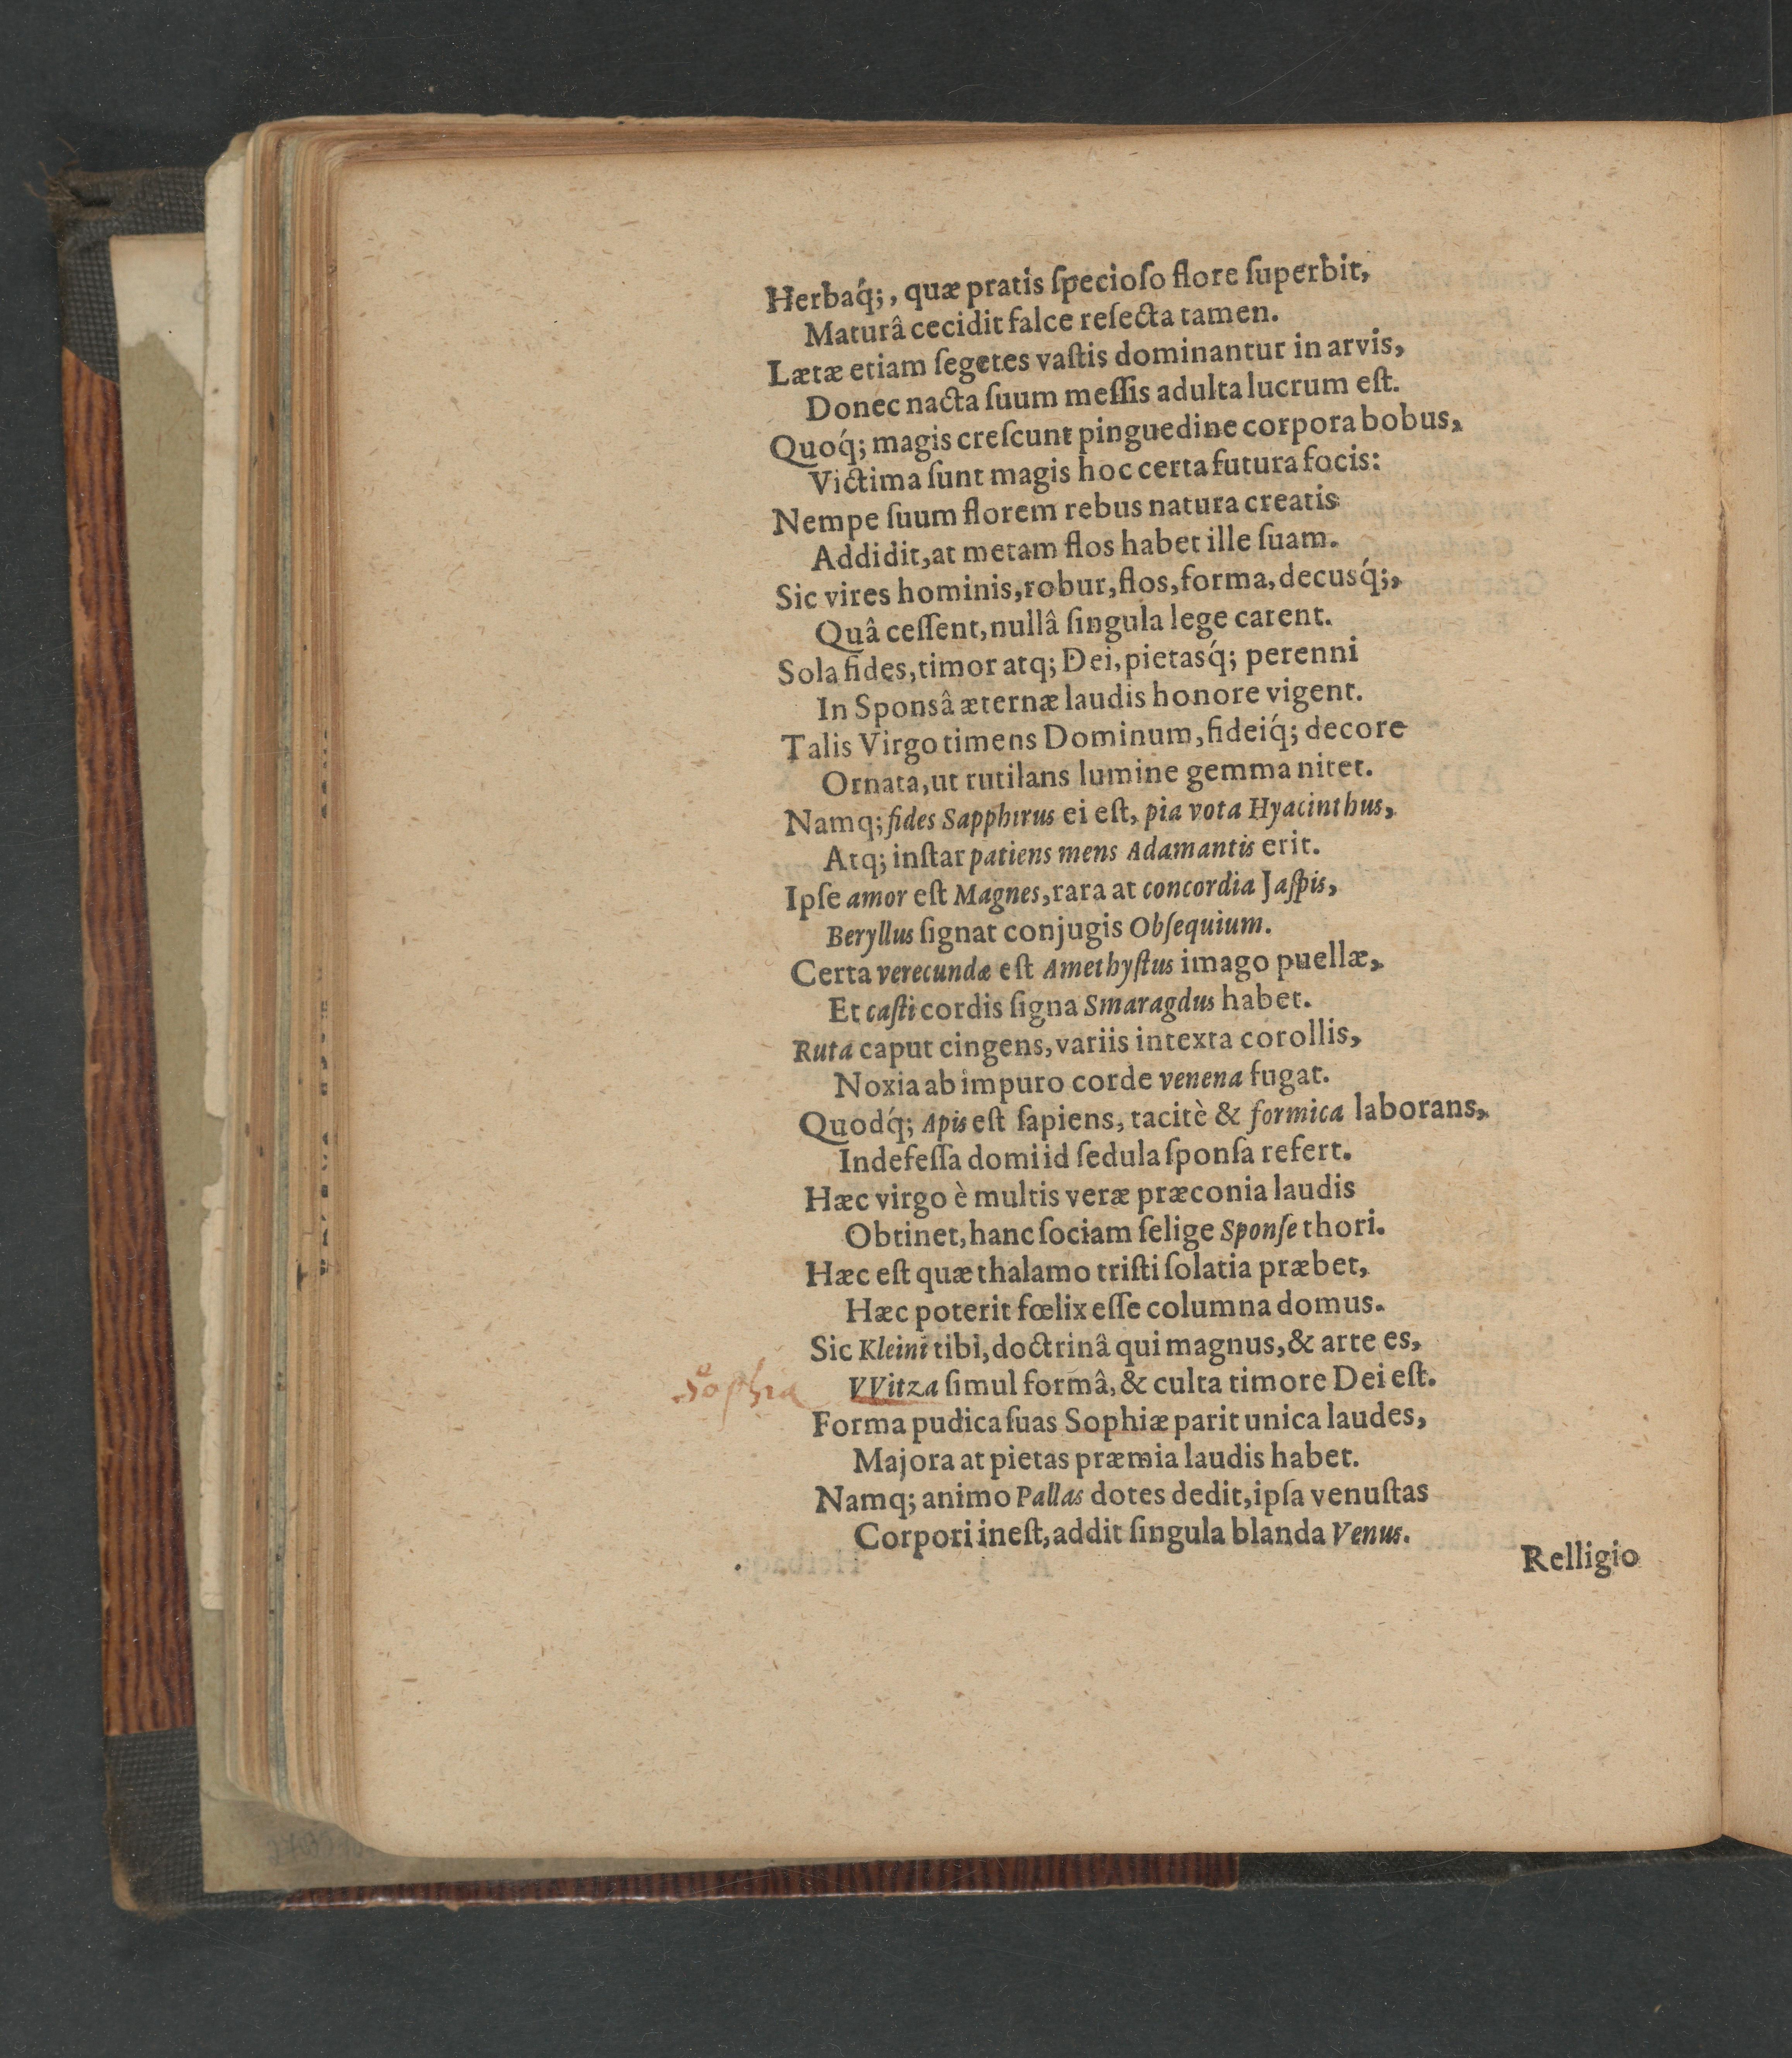 Herbaq́;, quæ pratis ſpecioſo flore ſuperbit,
Maturâ cecidit falce reſecta tamen.
Lætæ etiam ſegetes vaſtis dominantur in arvis,
Donec nacta ſuum meſſis adulta lucrum eſt.
Quoq́; magis creſcunt pinguedine corpora bobus,
Victima ſunt magis hoc certa futura focis:
Nempe ſuum florem rebus natura creatis
Addidit, at metam flos habet ille ſuam.
Sic vires hominis, robur, flos, forma, decusq́;,
Quâ ceſſent, nullâ ſingula lege carent.
Sola fides, timor atq; Dei, pietasq́; perenni
In Sponsâ æternæ laudis honore vigent.
Talis Virgo timens Dominum, fideiq́; decore
Ornata, ut rutilans lumine gemma nitet.
Namq; fides Sapphirus ei eſt, pia vota Hyacinthus,
Atq; inſtar patiens mens Adamantis erit.
Ipſe amor eſt Magnes, rara at concordia Jaſpis,
Beryllus ſignat conjugis Obſequium.
Certa verecundæ eſt Amethyſtus imago puellæ,
Et caſti cordis ſigna Smaragdus habet.
Ruta caput cingens, variis intexta corollis,
Noxia ab impuro corde venena fugat.
Quodq́; Apis eſt ſapiens, tacitè & formica laborans,
Indefeſſa domi id ſedula ſponſa refert.
Hæc virgo è multis veræ præconia laudis
Obtinet, hanc ſociam ſelige Sponſe thori.
Hæc eſt quæ thalamo triſti ſolatia præbet,
Hæc poterit fœlix eſſe columna domus.
Sic Kleini tibi, doctrinâ qui magnus, & arte es,
Sophia VVitza ſimul formâ, & culta timore Dei eſt.
Forma pudica ſuas Sophiæ parit unica laudes,
Majora at pietas præmia laudis habet.
Namq; animo Pallas dotes dedit, ipſa venuſtas
Corpori ineſt, addit ſingula blanda Venus.
Relligio